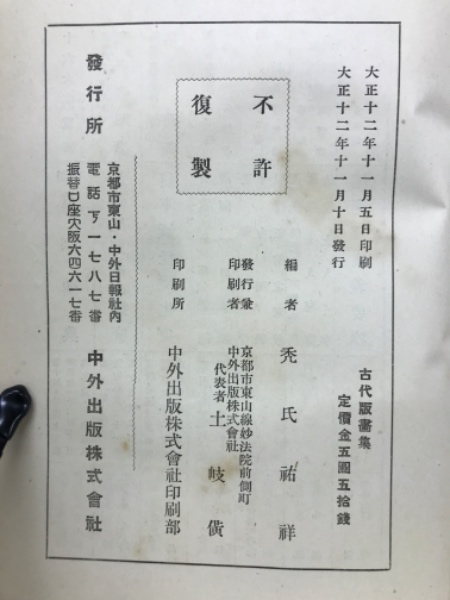 大正十二年十一月五日印刷
大正十二年十一月十日發行
古代版畫集
定價金五圓五拾錢
不許
復製
編者 禿氏祐祥
發行兼
印刷者
京都市東山線妙法院前側町
中外出版株式會社
代表者 土岐
印刷所 中外出版株式會社印刷部
發行所
京都市東山・中外日報社內
電話下一七八七番
振替口座大阪六四六一七番
中外出版株式會社